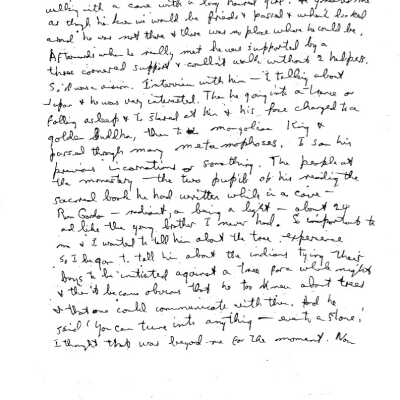 walking with a cane with a long haired girl. 
as though he knew we would be friends & passed & when I looked
around he was not there & there was no place where he could be.
Afterwards when he really met he was supported by a
three cornered support & couldn't walk without 2 helpers.
So it was a vision. Interview with him – I talking about
Japan & he was very interested. Then he going into a trance or
falling asleep & I stared at him & his face changed to a
golden buddha, then to a mongolian King &
passed though many metamorphoses. I saw his
previous incarnations or something. The people at
the monastery – the two pupils of his reading the
sacred book he had written while in a cave –
radiant, a being of light – about 24
and like the young brother I never had. So important to
me & I wanted to tell him about the tree experience
So I began to tell him about the indians tying their
boys to be initiated against a tree for a while night
& then it became obvious that he too knew about trees
& that one could communicate with them. And he
said 'You can tune into anything – even a stone'.
I thought that was beyond me for the moment. Now